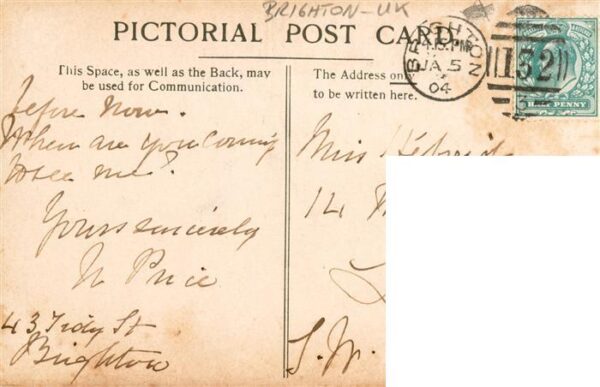 BRIGHTON-UK
PICTORIAL POST CARD.
This Space, as well as the Back, may
be used for Communication.
The Address only
to be written here.
BRIGHTON
4.15 PM
JA 5
04
152
HALF PENNY
before now.
When are you coming
to see me?
Yours sincerely
N Price
43 Tidy St
Brighton
Miss
14
S.W.